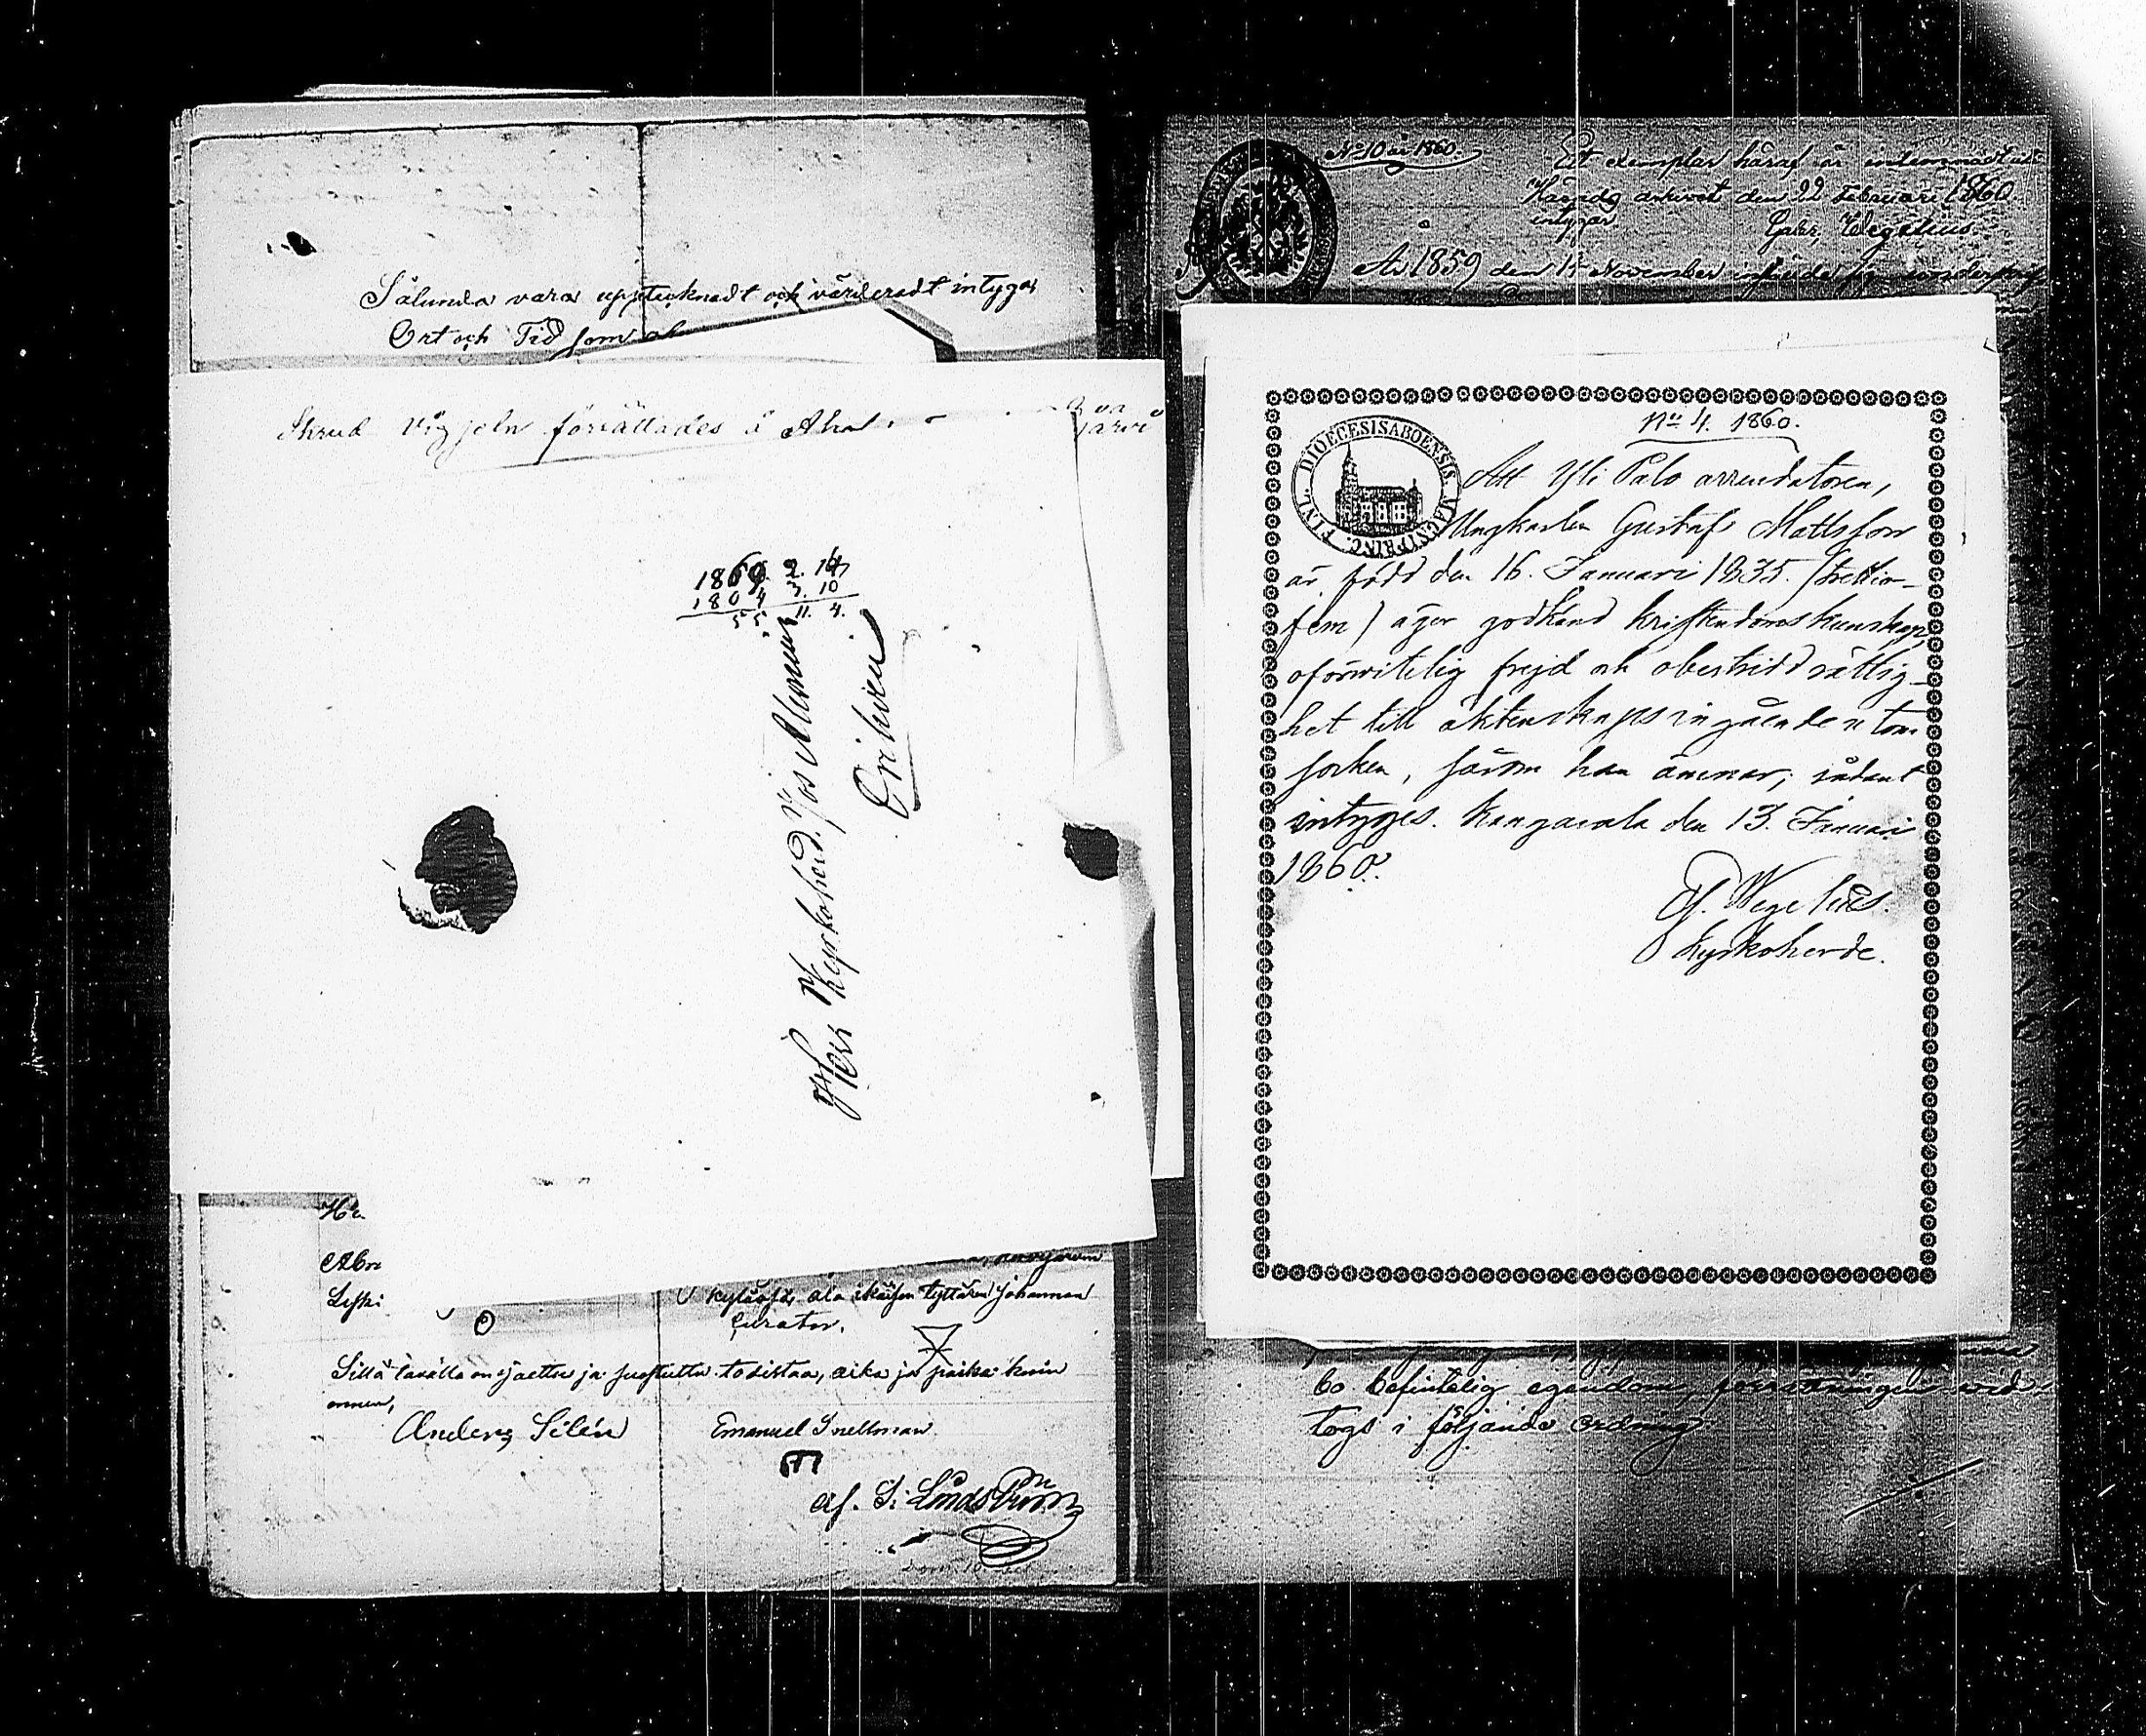 Sålunda vara upptecknadt och värderadt intygar
Ort och Tid som
Skrud Vigseln förrättades å
järvi
1860. 2. 14
1804 3. 10
55 11. 4.
Herr Kyrkoherd.
Orihvesi
Leski
kylästä, ala ikäisen tyttären Johannan
Curator.
Sillä tavalla on jaettu ja suostuttu todistaa, aika ja paikka kuin
ennen,
Anders Silén Emanuel Snellman
af. S: Lindström
No 10 år 1860.
Ett exemplar häraf är inlemnadt uti
Härads arkivet den 22 Februari 1860.
intygar. Gabr. Wegelius.
År 1859 den 15 November infunde sig undertecknad
No 4. 1860.
FINL. DIOECESIS ABOENSIS MAGNI PRINC.
Att Yli Palo arrendatoren,
Ungkarlen Gustaf Mattsson
är född den 16. Januari 1835. (trettio-
fem) äger godkänd kristendomskunskap,
oförvitelig frejd och obestridd rättig-
het till äktenskaps ingående utom
socken, såsom han ämnar; sådant
intygges. Kangasala den 13. Januari
1860.
G. Wegelius.
Kyrkoherde.
bo befintelig egendom, förrättningen wid-
togs i följande ordning